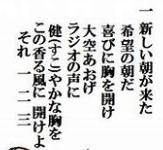 一 新しい朝が来た
希望の朝だ
喜びに胸を開け
大空あおげ
ラジオの声に
健(すこ)やかな胸を
この香る風に 開けよ
それ 一 二 三